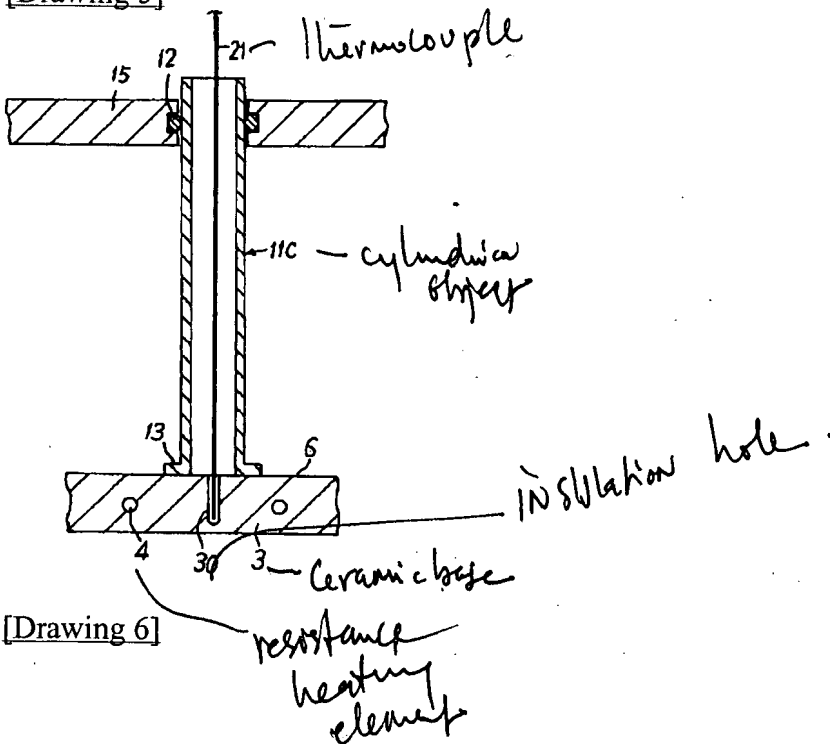 [Drawing 5]
21 Thermocouple
12
15
11C cylindrica
object
13
6
insulation hole.
4
30
3 Ceramic base
[Drawing 6]
resistance
heating
element